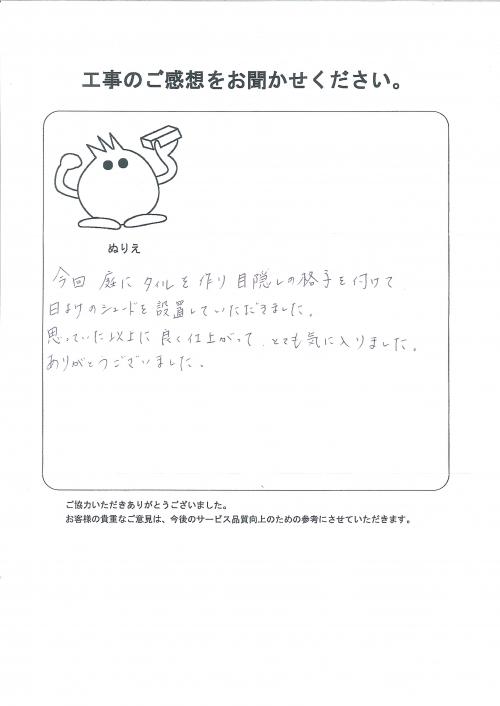 工事のご感想をお聞かせください。
ぬりえ
今回 庭に タイルを 作り 目隠しの格子を付けて
日よけのシェードを 設置していただきました。
思っていた以上に 良く仕上がって とても気に入りました。
ありがとうございました。
ご協力いただきありがとうございました。
お客様の貴重なご意見は、今後のサービス品質向上のための参考にさせていただきます。